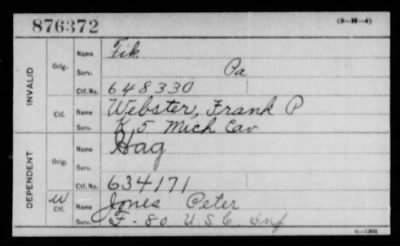 876372 (3-H-4)
INVALID
Orig.
Name Fik
Serv. Pa
Ctf. No. 648330
Ctf.
Name Webster, Frank P
Serv. K, 5 Mich Cav
DEPENDENT
Orig.
Name Hag
Serv.
Ctf. No. 634171
W Ctf.
Name Jones Peter
Serv. F - 80 U.S.C. Inf